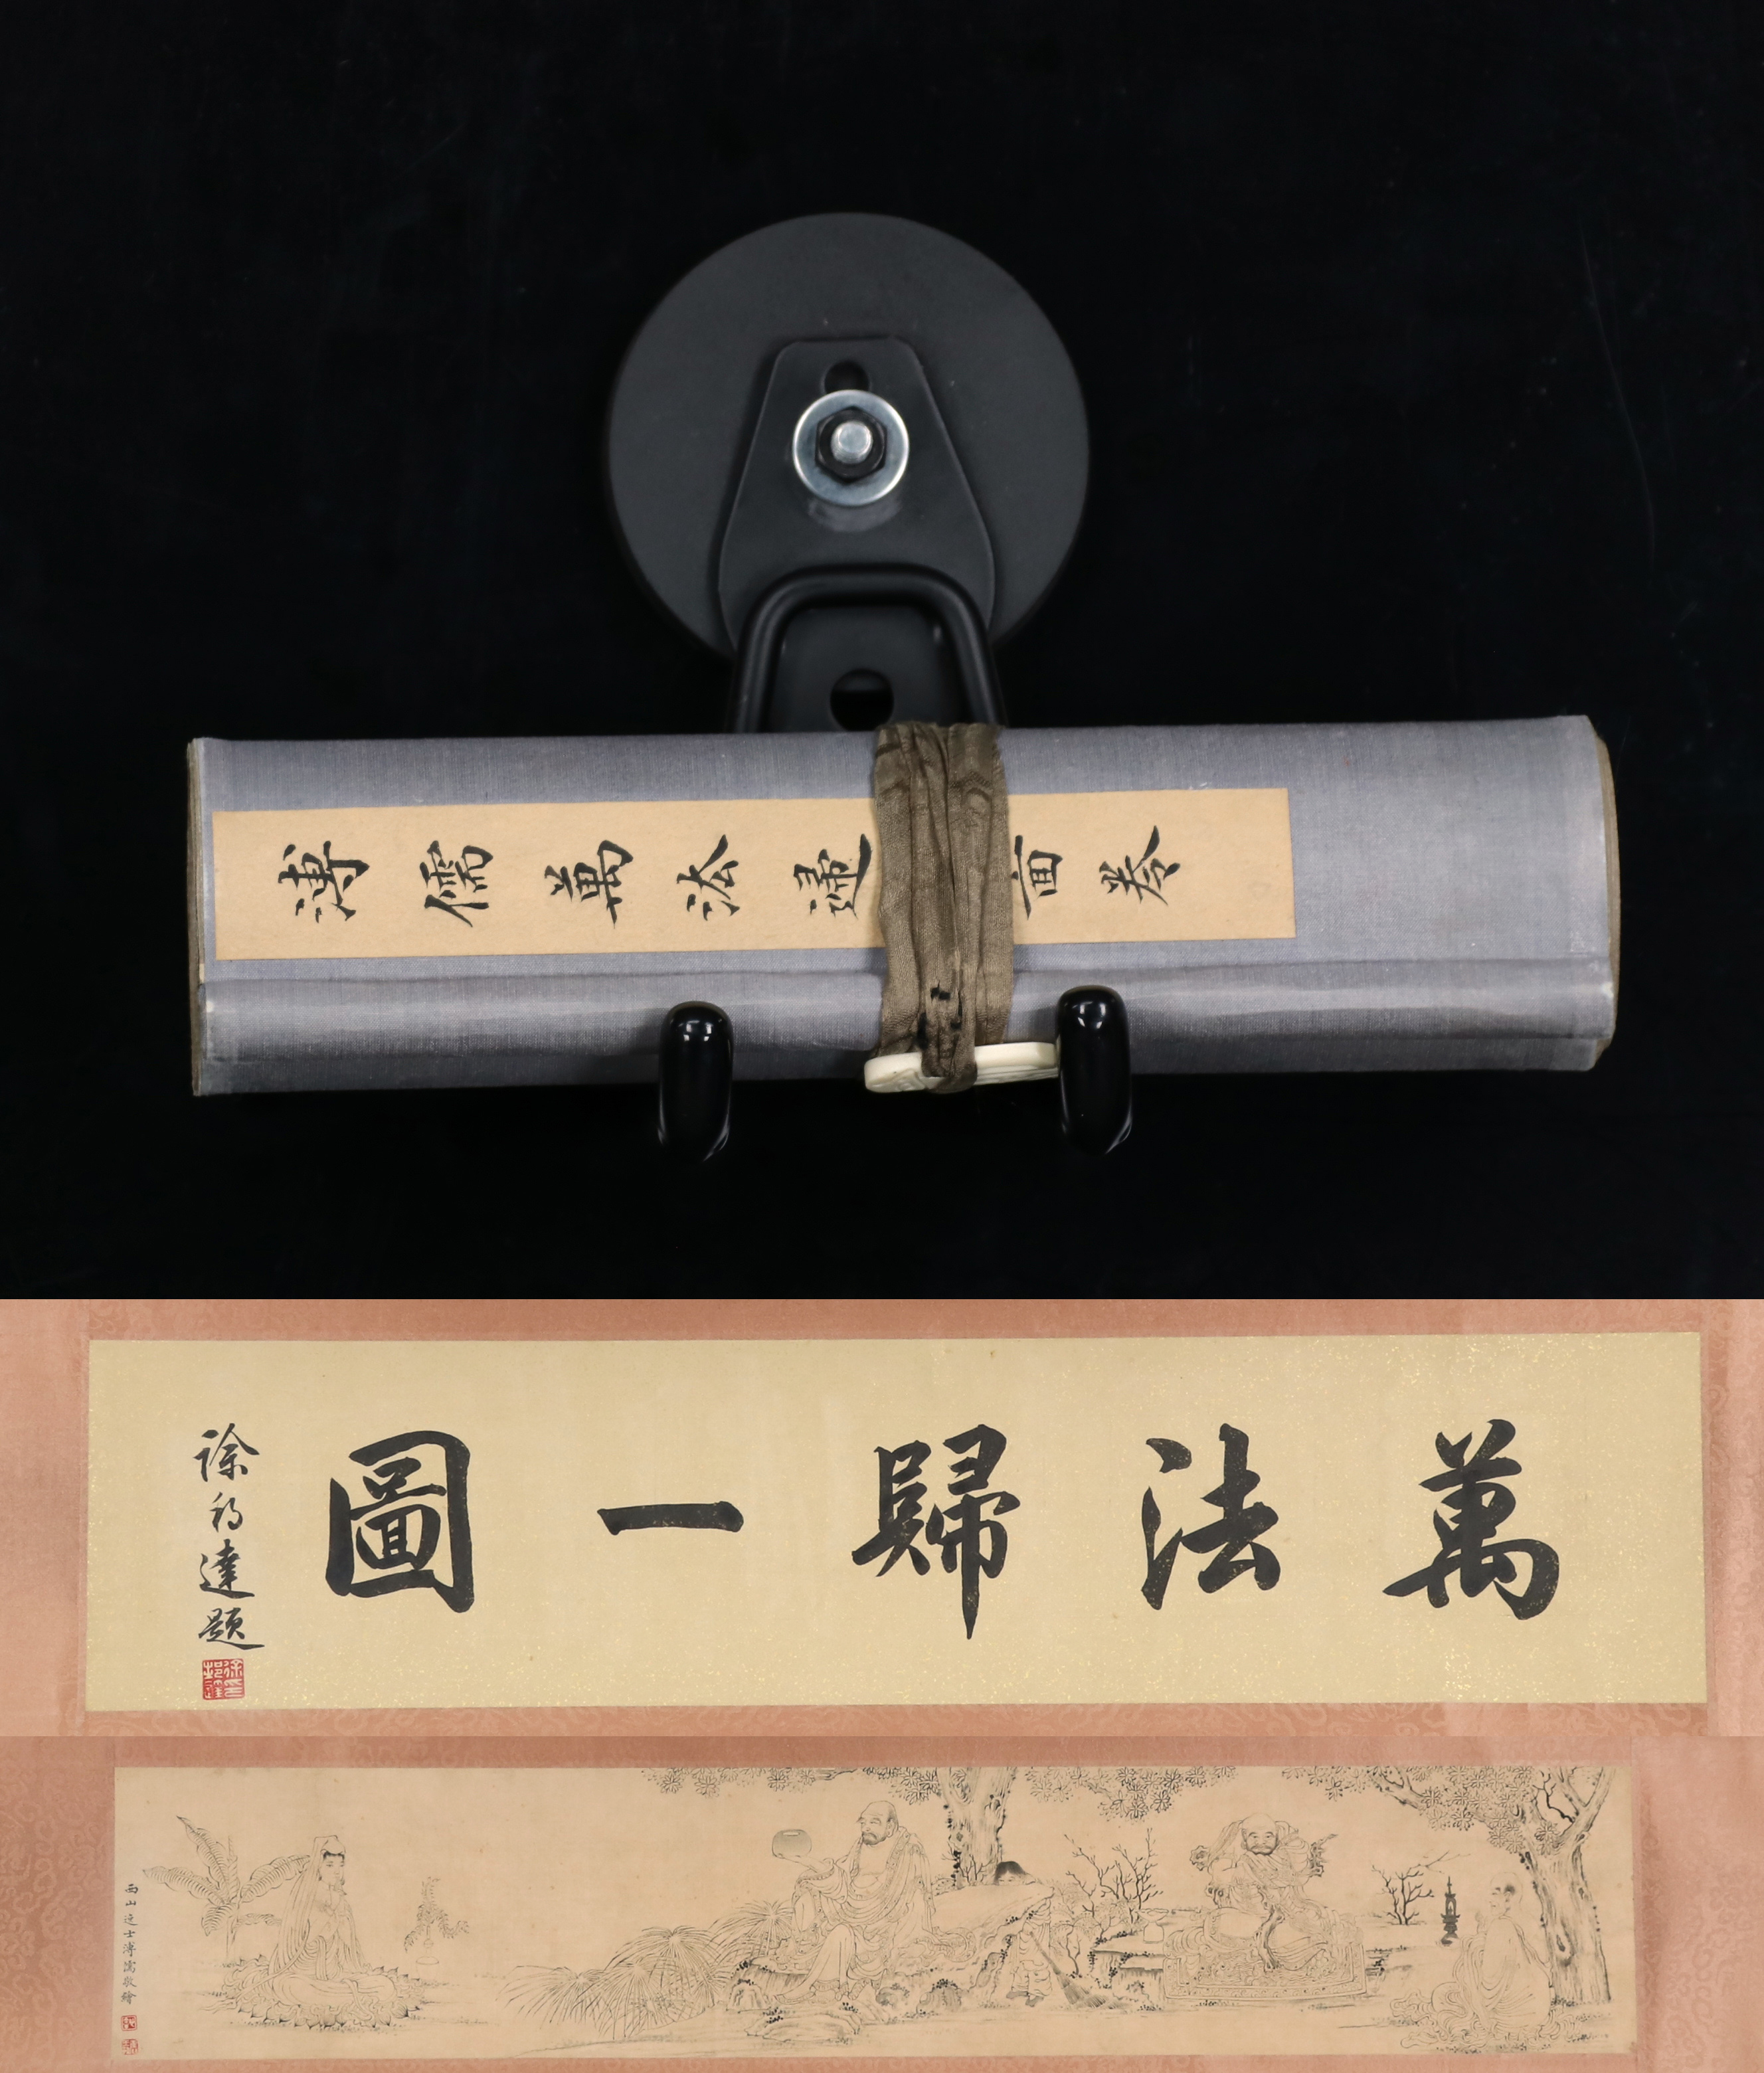 溥儒萬法歸
圖卷
萬法歸一圖
徐邦達題
西山逸士溥儒敬繪